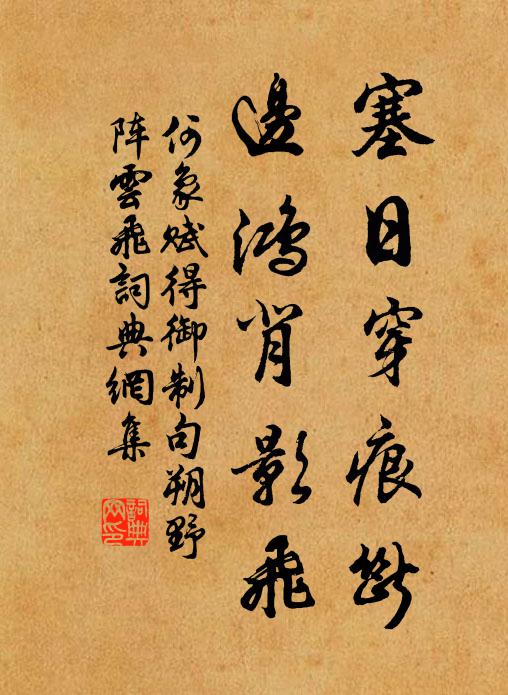 塞日穿痕斷
邊鴻背影飛
何象賦得御制句朔野
阵雲飛詞典網集
詞典网印